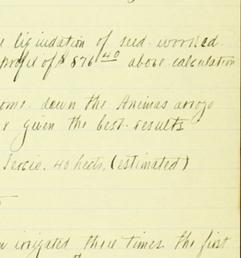 liquidation of seed worked
profit of $876 40 above calculation
down the Animas arroyo
given the best results
40 hects. (estimated)
irrigated three times the first